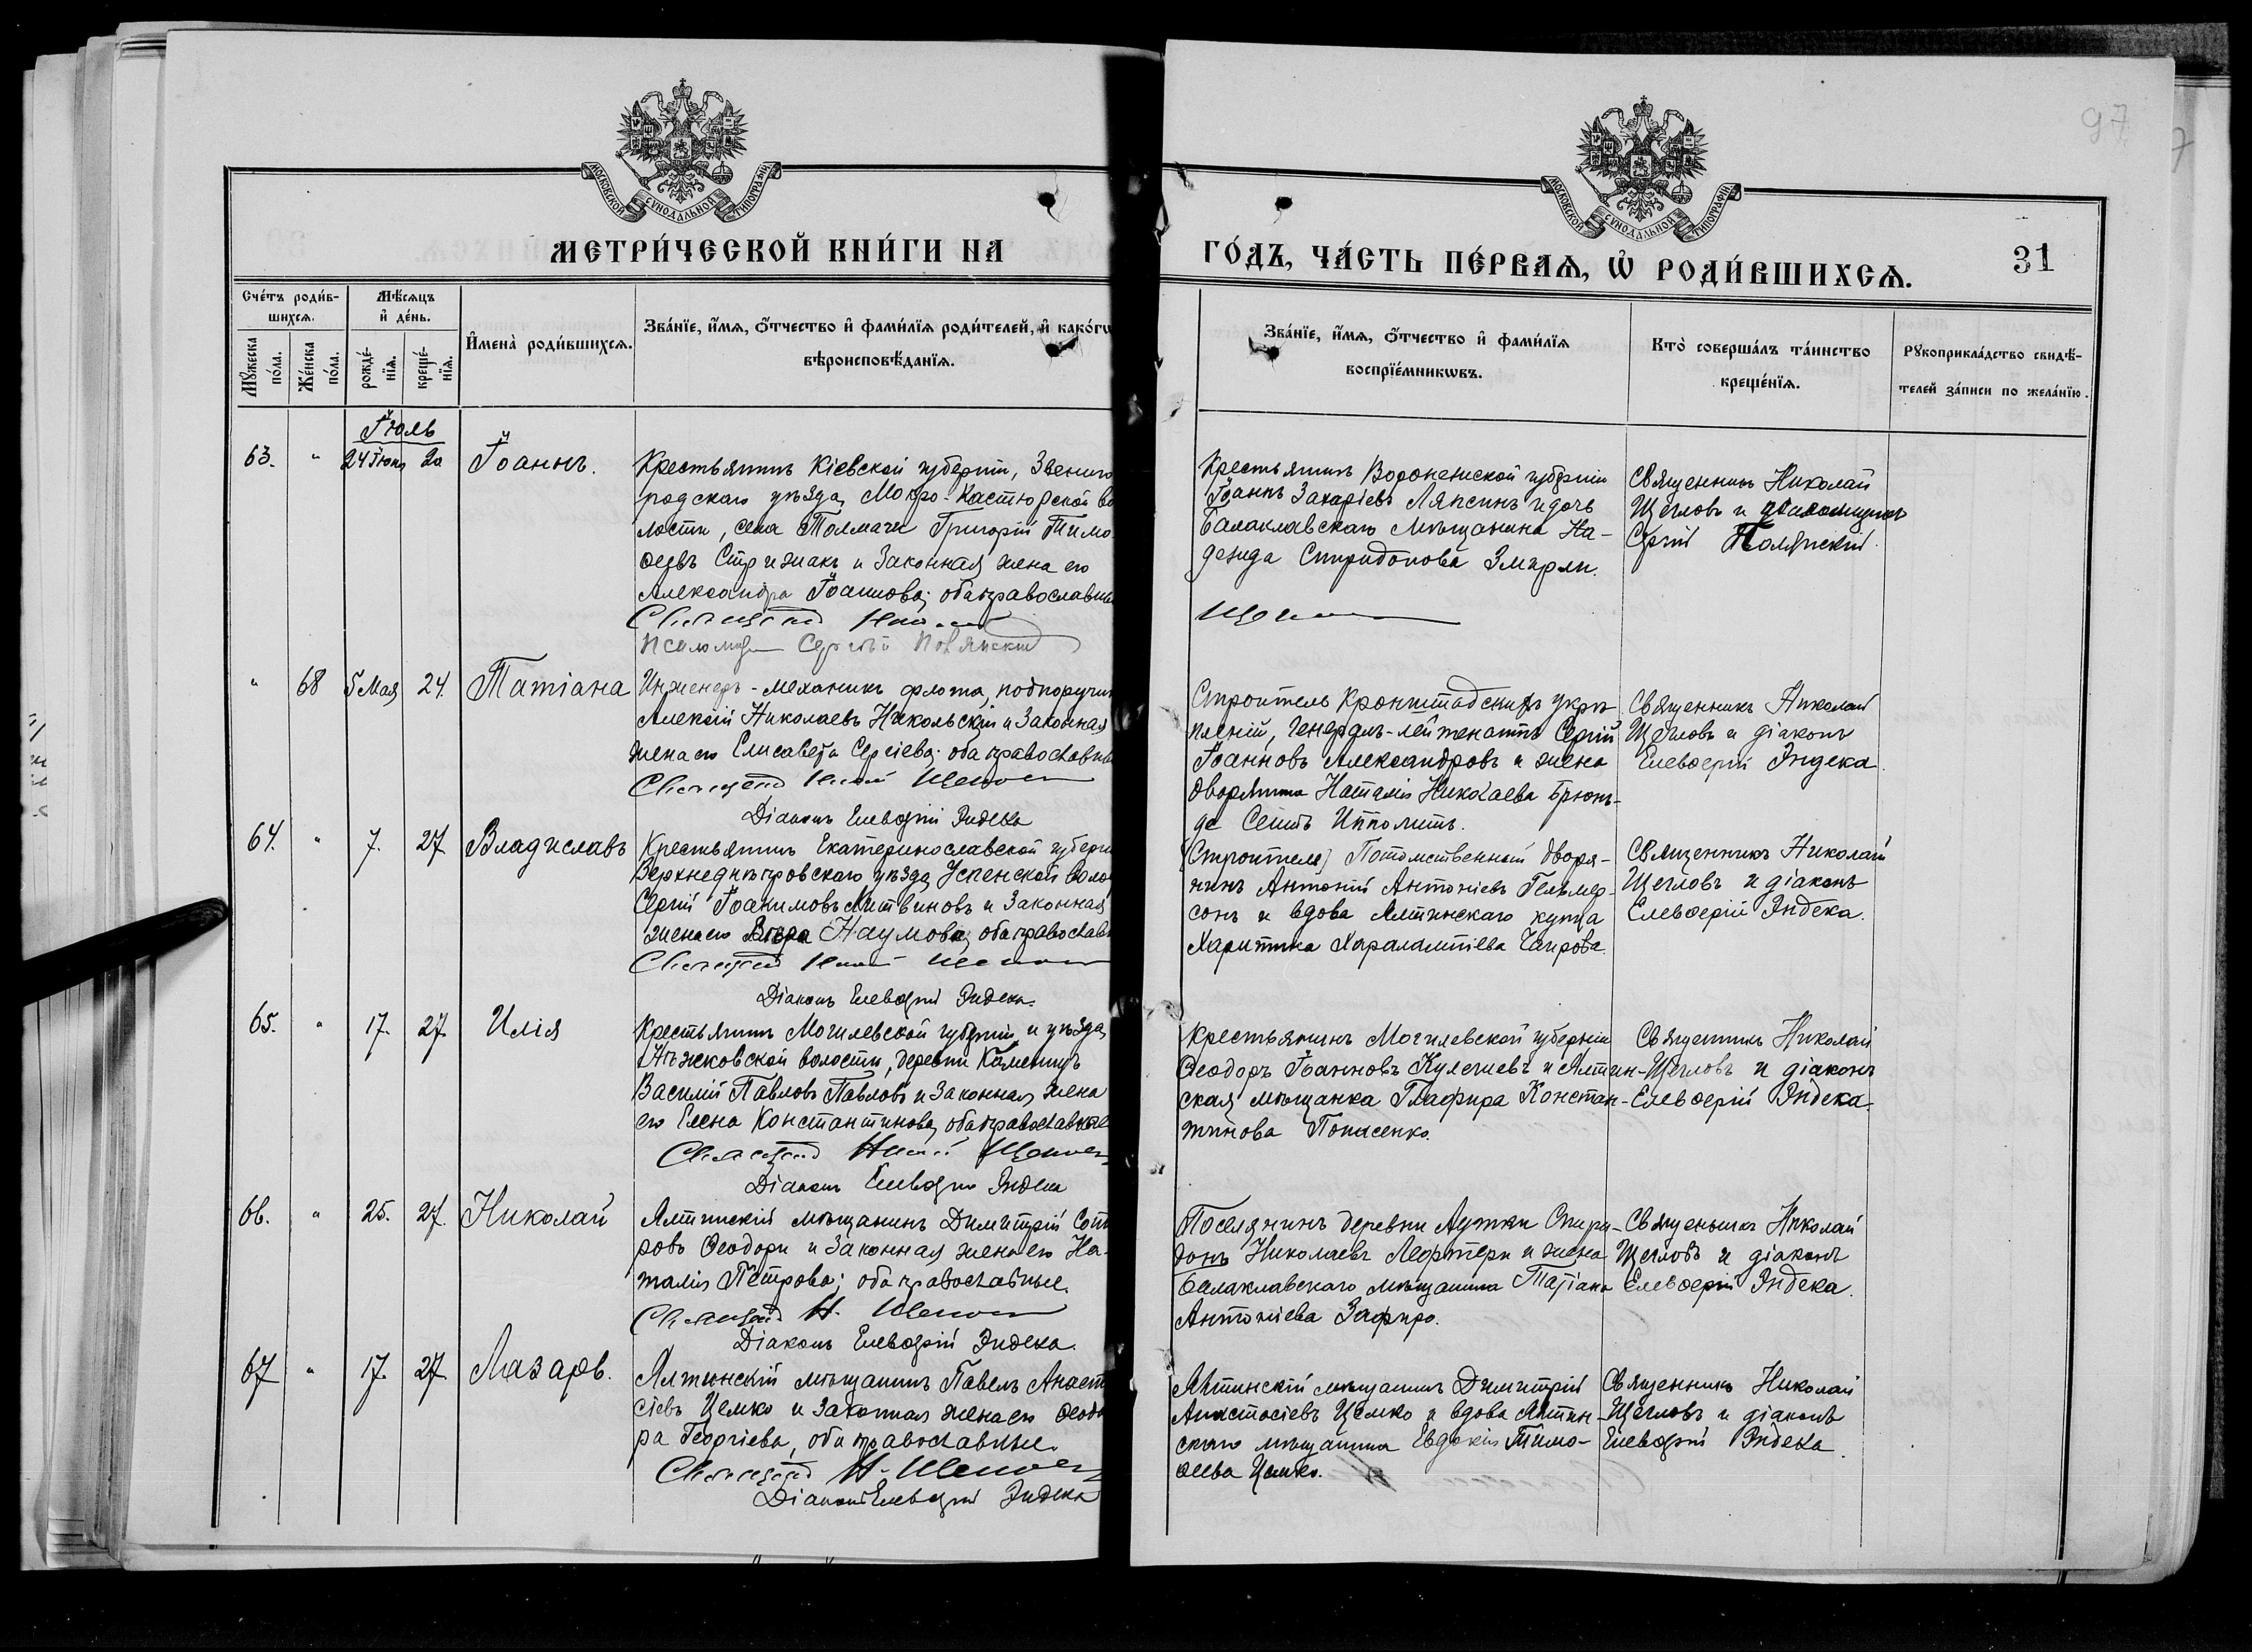 97
7
МОСКОВСКОЙ СѴНОДАЛЬНОЙ ТИПОГРАФІИ
МОСКОВСКОЙ СѴНОДАЛЬНОЙ ТИПОГРАФІИ
МЕТРИ́ЧЕСКОЙ КНИ́ГИ НА
ГО́ДЪ, ЧА́СТЬ ПЕ́РВАѦ, Ѽ РОДИ́ВШИХСѦ.
31
Сче́тъ роди́в-
шихсѧ.
Мꙋ́жеска
по́ла.
Же́нска
по́ла.
Мѣ́сѧцъ
и҆ де́нь.
рожде́-
нїѧ.
креще́-
нїѧ.
И҆мена̀ роди́вшихсѧ.
Зва́нїе, и҆́мѧ, ѻ҆́тчество и҆ фами́лїѧ роди́телей, и҆ како́гѡ
вѣроисповѣ́данїѧ.
Зва́нїе, и҆́мѧ, ѻ҆́тчество и҆ фами́лїѧ
воспрїе́мникѡвъ.
Кто̀ соверша́лъ та́инство
креще́нїѧ.
Рꙋкоприкла́дство свидѣ́-
телей за́писи по жела́нїю.
Іюль
63. " 24 Іюня 20 Іоаннъ.
Крестьянинъ Кіевской губерніи, Звениго
родскаго уѣзда, Мокро-
лости, села Толмачи Григорій Тимо
ѳеевъ Стрижакъ и законная жена его
Александра Іоаннова; оба православны
Священникъ
Псаломщ Сергій Полянскій
Крестьянинъ Воронежской губерніи
Іоаннъ Захаріевъ Ляпсинъ и дочь
Балаклавскаго мѣщанина На-
дежда Спиридонова Змирли.
Священникъ Николай
Щегловъ и псаломщикъ
Сергій Полянскій.
" 68 5 Мая 24. Татіана
Инженеръ-механикъ флота, подпоручик
Алексій Николаевъ Никольскій и законная
жена его Елисавета Сергіева; оба православны
Священникъ
Діаконъ Елевѳерій Индека
Строитель Кронштадскихъ укрѣ
пленій, Генералъ-лейтенантъ Сергій
Іоанновъ Александровъ и жена
дворянина Наталія Николаева Брюнъ-
де Сентъ Ипполитъ.
Священникъ Николай
Щегловъ и діаконъ
Елевѳерій Индека.
64. " 7. 27 Владиславъ
Крестьянинъ Екатеринославской губерн
Верхнеднѣпровскаго уѣзда, Успенской воло
Сергій Іоакимовъ Литвиновъ и законная
жена его Вѣра Наумова; оба православ
Священникъ
Діаконъ Елевѳерій Индека.
(Строитель) Потомственный дворя-
нинъ Антоній Антоніевъ
сонъ и вдова Ялтинскаго купца
Харитина Харалампіева Чаирова.
Священникъ Николай
Щегловъ и діаконъ
Елевѳерій Индека.
65. " 17. 27. Илія
Крестьянинъ Могилевской губерніи и уѣзда,
волости, деревни Каменицъ
Василій Павловъ Павловъ и законная жена
его Елена Константинова, оба православные
Священникъ
Діаконъ Елевѳерій Индека
Крестьянинъ Могилевской губерніи
Ѳеодоръ Іоанновъ Кулешевъ и Ялтин-
ская мѣщанка Глафира Констан-
тинова Понисенко.
Священникъ Николай
Щегловъ и діаконъ
Елевѳерій Индека.
66. " 25. 27. Николай
Ялтинскій мѣщанинъ Димитрій Соти
ровъ Ѳеодори и законная жена его На-
талія Петрова; оба православные.
Священникъ Н.
Діаконъ Елевѳерій Индека.
Поселянинъ деревни Аутки Спири-
донъ Николаевъ Лефтери и жена
Балаклавскаго мѣщанина Татіана
Антоніева Зафиро.
Священникъ Николай
Щегловъ и діаконъ
Елевѳерій Индека.
67 " 17. 27 Лазарь.
Ялтинскій мѣщанинъ Павелъ Анаста
сіевъ Цемко и законная жена его Ѳеодо
ра Георгіева, оба православные.
Священникъ Н.
Діаконъ Елевѳерій Индека
Ялтинскій мѣщанинъ Димитрій
Анастасіевъ Цемко и вдова Ялтин-
скаго мѣщанина Евдокія Тимо-
ѳеева Цемко.
Священникъ Николай
Щегловъ и діаконъ
Елевѳерій Индека.